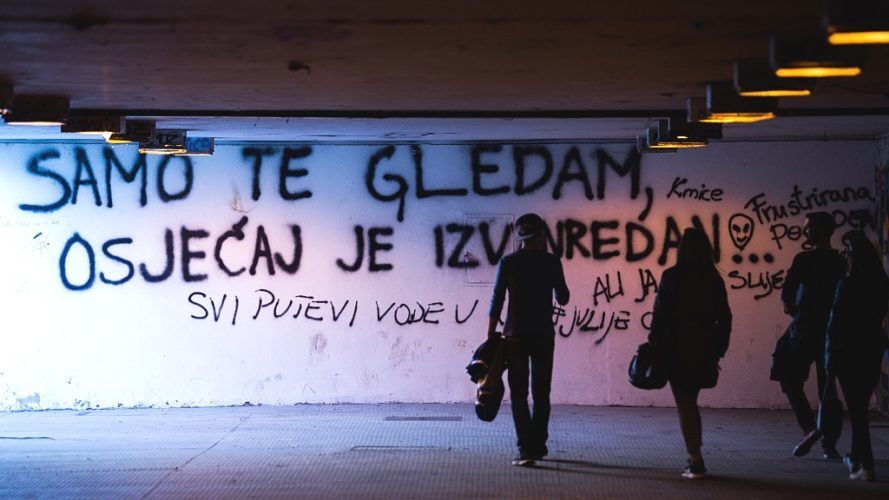 SAMO TE GLEDAM,
OSJEĆAJ JE IZVANREDAN...
Krnice
Frustrirana
SVI PUTEVI VODE U
ALI JA
SLIJE
JULIJE